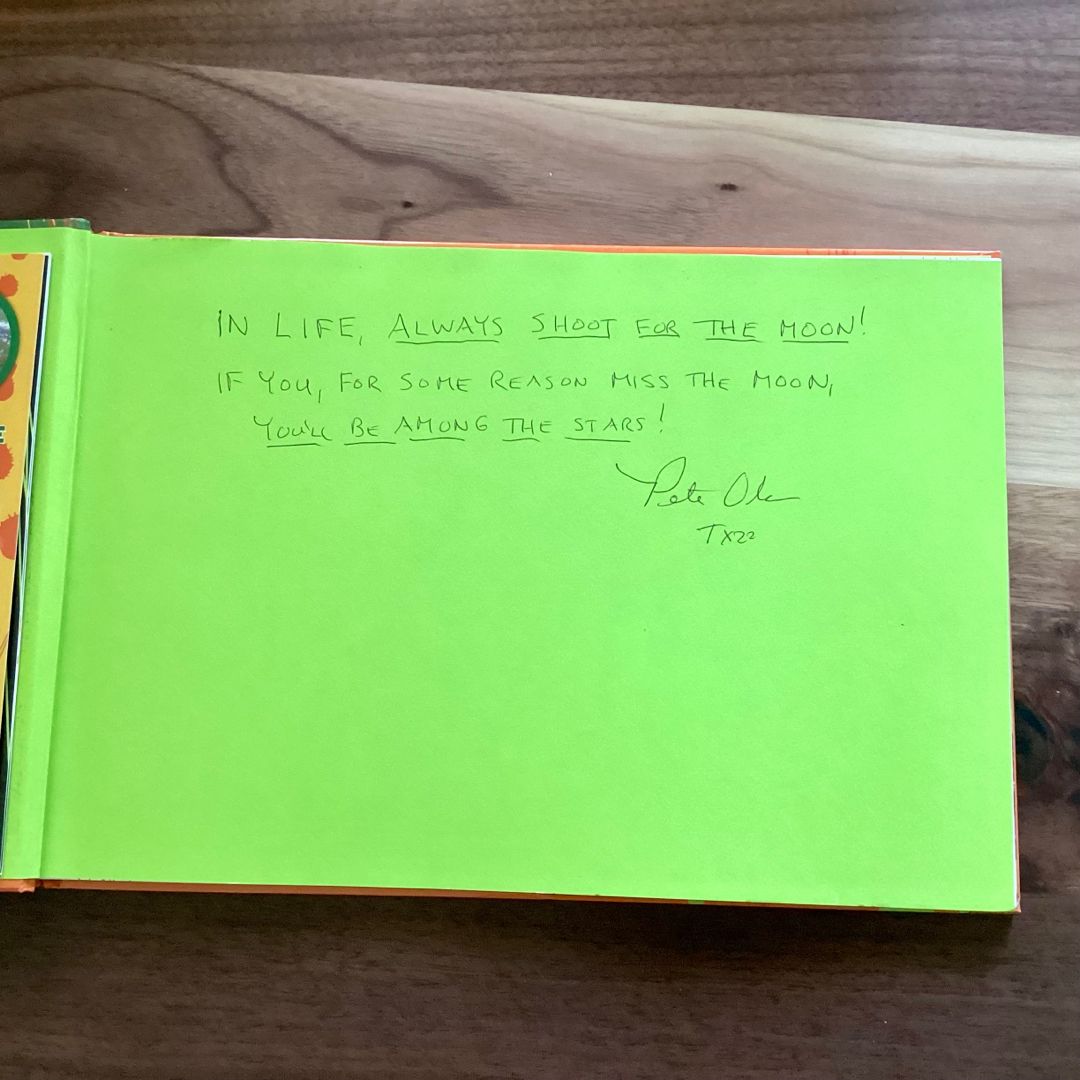 IN LIFE, ALWAYS SHOOT FOR THE MOON!
IF YOU, FOR SOME REASON MISS THE MOON,
YOU'LL BE AMONG THE STARS!
Pete Olson
TX22
E